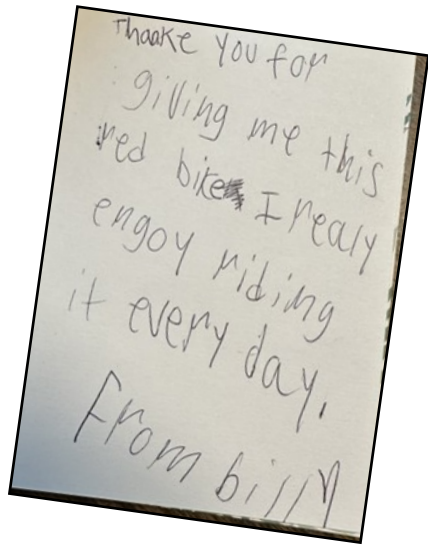 Thaake you for
giving me this
red bike I realy
engoy riding
it every day.
From billy